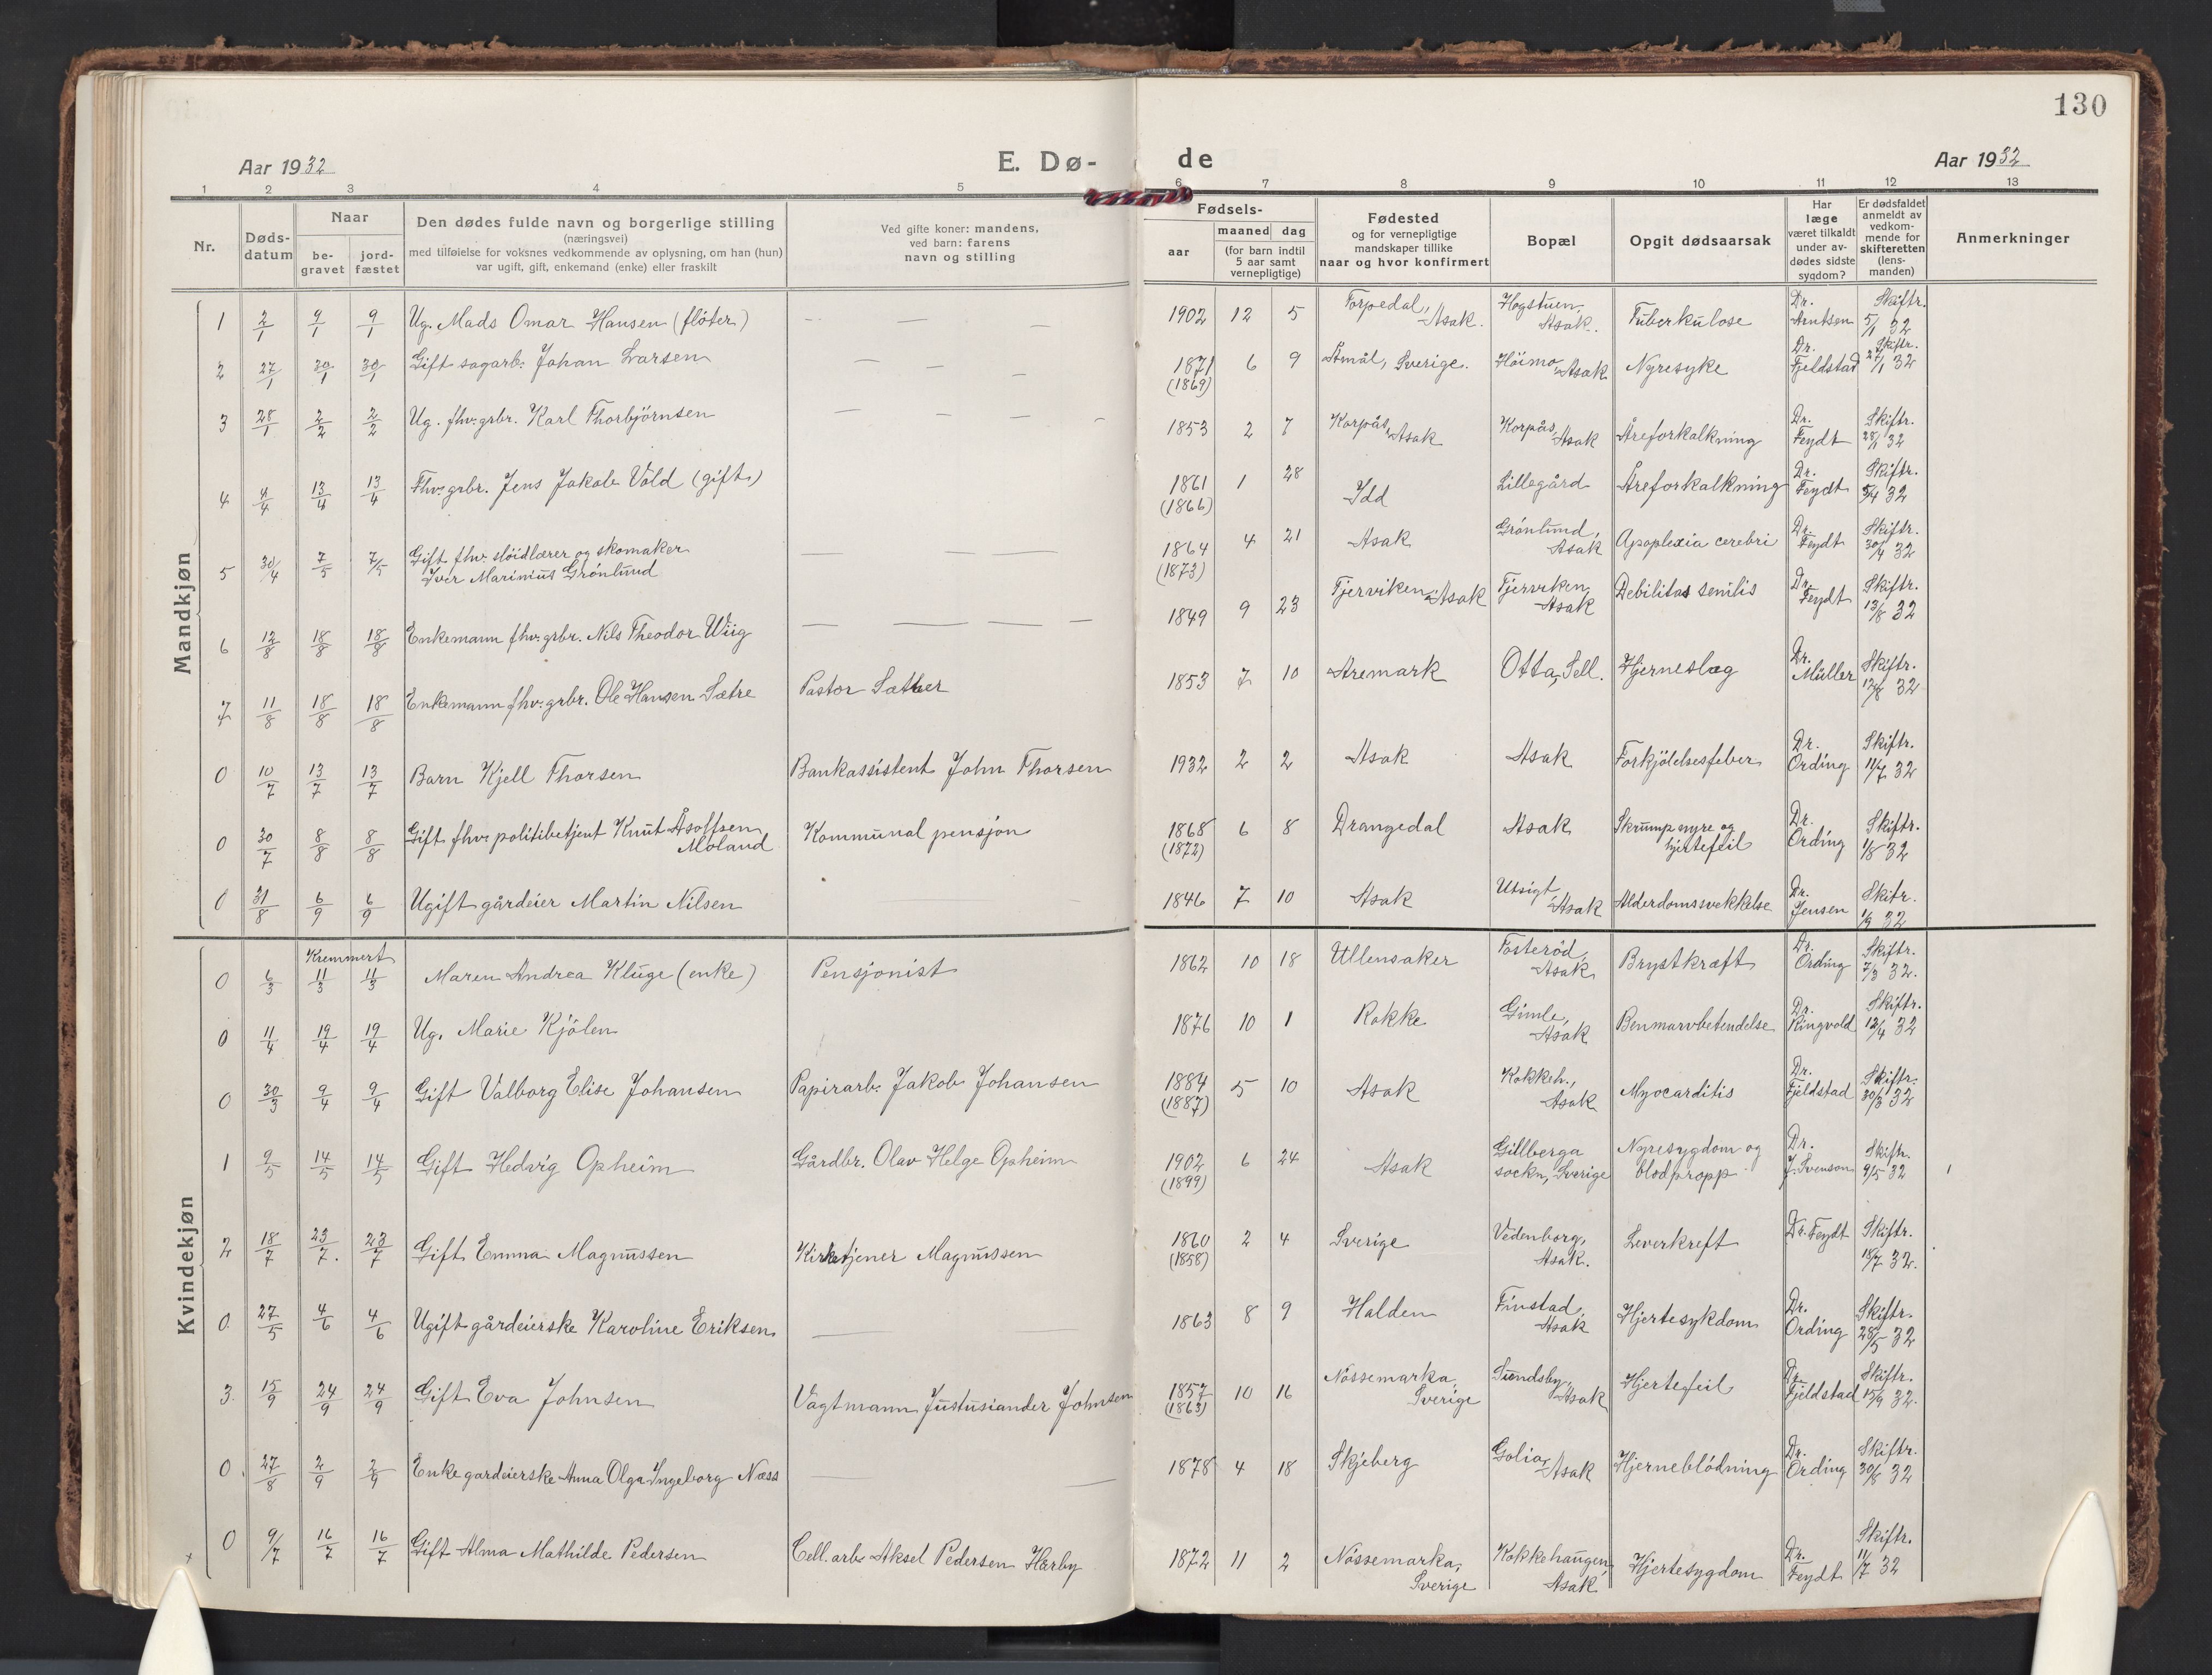 130
Aar 1932
E. Dø-
de
Aar 1932
1 2 3 4 5 6 7 8 9 10 11 12 13
Nr.
Døds-
datum
Naar
be-
gravet
jord-
fæstet
Den dødes fulde navn og borgerlige stilling
(næringsvei)
med tilføielse for voksnes vedkommende av oplysning, om han (hun)
var ugift, gift, enkemand (enke) eller fraskilt
Ved gifte koner: mandens,
ved barn: farens
navn og stilling
Fødsels-
aar
maaned dag
(for barn indtil
5 aar samt
vernepligtige)
Fødested
og for vernepligtige
mandskaper tillike
naar og hvor konfirmert
Bopæl
Opgit dødsaarsak
Har
læge
været tilkaldt
under av-
dødes sidste
sygdom?
Er dødsfaldet
anmeldt av
vedkom-
mende for
skifteretten
(lens-
manden)
Anmerkninger
Mandkjøn
1 2/1 9/1 9/1 Ug. Mads Omar Hansen (fløter) 1902 12 5 Torpedal, Asak. Høgstuen, Asak. Tuberkulose Dr. Arntsen Skiftr. 5/1 32
2 27/1 30/1 30/1 Gift sagarb. Johan Larsen 1871 (1869) 6 9 Åmål, Sverige. Höimo, Asak Nyresyke Dr. Fjeldstad Skiftr. 27/1 32
3 28/1 2/2 2/2 Ug. fhv. grbr. Karl Thorbjörnsen 1853 2 7 Korpås, Asak Korpås, Asak Åreforkalkning Dr. Feydt Skiftr. 28/1 32
4 4/4 13/4 13/4 Fhv. grbr. Jens Jakob Vold (gift) 1861 (1866) 1 28 Idd Lillegård Åreforkalkning Dr. Feydt Skiftr. 5/4 32
5 30/4 7/5 7/5 Gift fhv. slöidlærer og skomaker
Iver Marinius Grönlund 1864 (1873) 4 21 Asak Grönlund, Asak Apoplexia cerebri Dr. Feydt Skiftr. 30/4 32
6 12/8 18/8 18/8 Enkemann fhv. grbr. Nils Theodor Wiig 1849 9 23 Tjerviken, Asak Tjerviken, Asak Debilitas senilis Dr. Feydt Skiftr. 13/8 32
7 11/8 18/8 18/8 Enkemann fhv. grbr. Ole Hansen Sætre Pastor Sæther 1853 7 10 Aremark Otta, Sell. Hjerneslag Dr. Müller Skiftr. 12/8 32
0 10/7 13/7 13/7 Barn Kjell Thorsen Bankassistent John Thorsen 1932 2 2 Asak Asak Forkjölelsesfeber Dr. Ording Skiftr. 11/7 32
0 30/7 8/8 8/8 Gift fhv. politibetjent Knut Åsolfsen
Moland Kommunal pensjon 1868 (1872) 6 8 Drangedal Asak Skrumpnyre og hjertefeil Dr. Ording Skiftr. 1/8 32
0 31/8 6/9 6/9 Ugift gårdeier Martin Nilsen 1846 7 10 Asak Utsigt, Asak Alderdomssvekkelse Dr. Jensen Skiftr. 1/9 32
Kvindekjøn
Kremmert
0 6/3 11/3 11/3 Maren Andrea Kluge (enke) Pensjonist 1862 10 18 Ullensaker Fosteröd, Asak Brystkræft Dr. Ording Skiftr. 7/3 32.
0 11/4 19/4 19/4 Ug. Marie Kjölen 1876 10 1 Rokke Gimle, Asak Benmarvbetendelse Dr. Ringvold Skiftr. 12/4 32
0 30/3 9/4 9/4 Gift Valborg Elise Johansen Papirarb. Jakob Johansen 1884 (1887) 5 10 Asak Kokkeh., Asak Myocarditis Dr. Fjeldstad Skiftr. 30/3 32
1 9/5 14/5 14/5 Gift Hedvig Opheim Gårdbr. Olav Helge Opheim 1902 (1899) 6 24 Asak Gillberga sockn, Sverige Nyresygdom og blodpropp Dr. J. Svenson Skiftr. 9/5 32
2 18/7 23/7 23/7 Gift Emma Magnussen Kirketjener Magnussen 1860 (1858) 2 4 Sverige Vedenborg, Asak. Leverkreft Dr. Feydt Skiftr. 18/7 32.
0 27/5 4/6 4/6 Ugift gårdeierske Karoline Eriksen 1863 8 9 Halden Finstad, Asak Hjertesykdom Dr. Ording Skiftr. 28/5 32
3. 15/9 24/9 24/9 Gift Eva Johnsen Vagtmann Justusiander Johnsen 1857 (1863) 10 16 Nössemarka, Sverige Sundsby, Asak Hjertefeil Dr. Fjeldstad Skiftr. 15/9 32.
0. 27/8 2/9 2/9 Enke gardeierske Anna Olga Ingeborg Næss 1878 4 18 Skjeberg Golia, Asak Hjerneblödning Dr. Ording Skiftr. 30/8 32
0 9/7 16/7 16/7 Gift Alma Mathilde Pedersen Cell. arb. Aksel Pedersen Hærby 1872 11 2 Nössemarka, Sverige Kokkehaugen, Asak Hjertesygdom Dr. Feydt Skiftr. 11/7 32